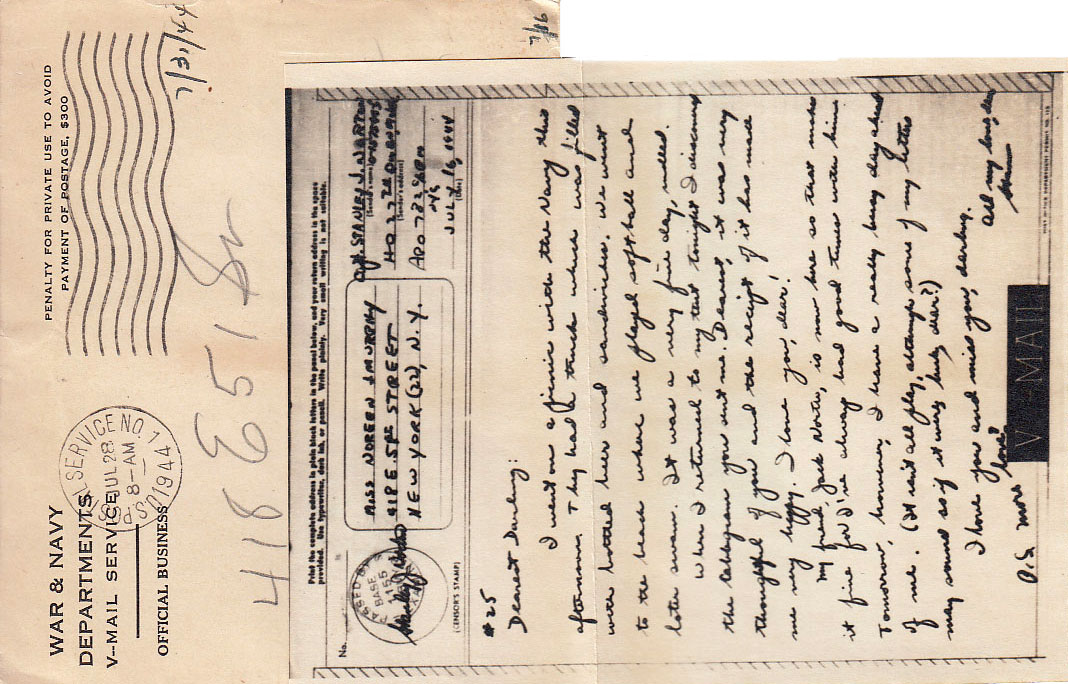 WAR & NAVY
DEPARTMENTS
V--MAIL SERVICE
OFFICIAL BUSINESS
PENALTY FOR PRIVATE USE TO AVOID
PAYMENT OF POSTAGE, $300
U.S. POSTAL SERVICE NO. 1
JUL 28
8-AM
1944
7/31/44
7/86
418 E 51 St
Print the complete address in plain block letters in the panel below, and your return address in the space
provided. Use typewriter, dark ink, or pencil. Write plainly. Very small writing is not suitable.
No.
PASSED BY
BASE
1155
ARMY
(CENSOR'S STAMP)
MISS NOREEN J MURPHY
418 E 51st STREET
NEW YORK (22), N.Y.
STANLEY J. NORTON
(Sender's name)
HQ 227th
(Sender's address)
APO 782 % P.M.
NYC
JULY 16, 1944
(Date)
#25
Dearest Darling:
I went on a picnic with the Navy this
afternoon. They had a truck which was filled
with bottled beer and sandwiches. We went
to the beach where we played softball and
later swam. It was a very fine day, indeed.
When I returned to my tent tonight I discovered
the cablegram you sent me. Dearest, it was very
thoughtful of you and the receipt of it has made
me very happy. I love you, dear!
My friend, Jack Norte, is now here so that makes
it fine for I've always had good times with him
Tomorrow, however, I have a really busy day ahead
of me. (It isn't all play, although some of my letters
may sound as if it were, huh, dear?)
I love you and miss you, darling.
All my love, dear
Stan
P.S. more
love?
V-MAIL
POST OFFICE DEPARTMENT PERMIT NO.